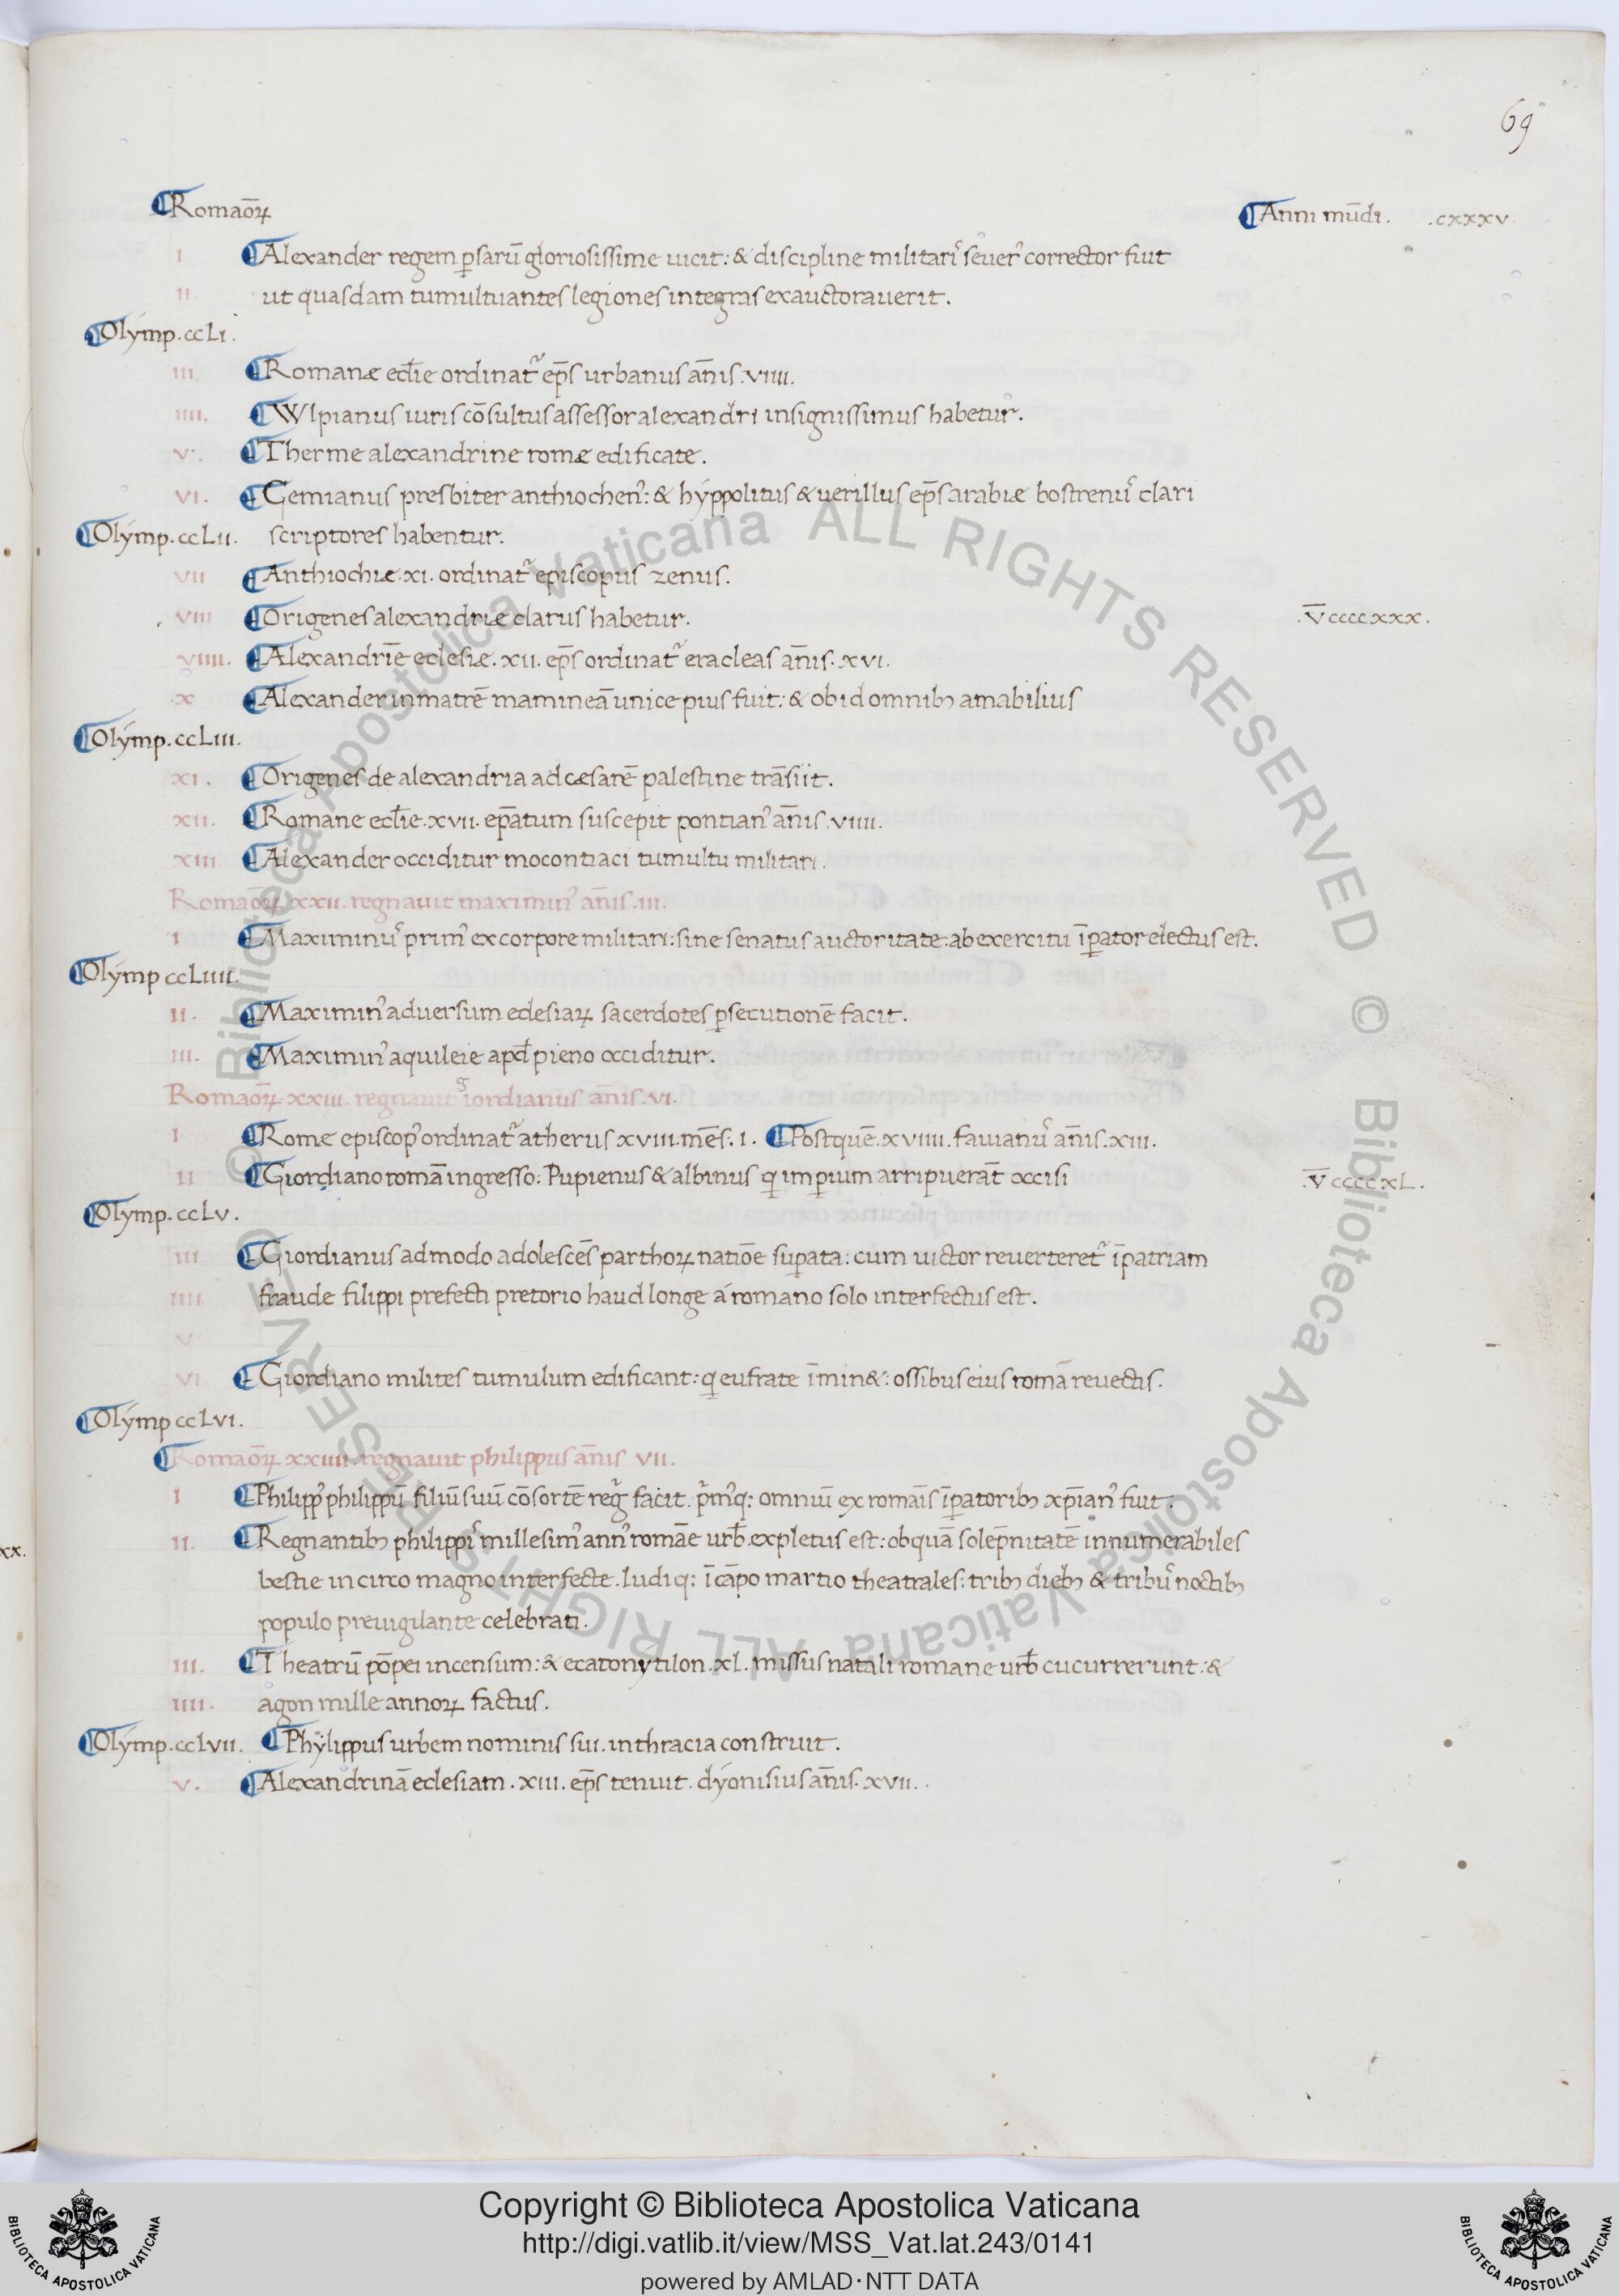 69
¶Romaōꝝ
¶Anni mūdi. .cxxxv.
I ¶Alexander regem ꝑsarū gloriosissime uicit: & discipline militarꝭ seuerꝰ corrector fuit
II ut quasdam tumultuantes legiones integras exauctorauerit.
¶Olẏmp.ccLı.
III ¶Romanæ eccłie ordinat᷑ ep̄s urbanus an̄is.vıııı.
IIII. ¶Wlpianus iuris cōsultus assessor alexandri insignissimus habetur.
V. ¶Therme alexandrine romæ edificate.
VI. ¶Gemianus presbiter anthiochenꝰ: & hẏppolitus & uerillus ep̄s arabiæ bostrenuꝰ clari
¶Olẏmp.ccLıı. scriptores habentur.
VII ¶Anthiochiæ.xı. ordinat᷑ episcopus zenus.
VIII ¶Origenes alexandriæ clarus habetur. .V̄ccccxxx.
VIIII. ¶Alexandrīe eclesiæ.xıı. ep̄s ordinat᷑ eracleas an̄is.xvı.
.X ¶Alexander inmatrē mamineā unice pius fuit: & ob id omnibꝫ amabilius
¶Olẏmp.ccLııı.
XI. ¶Origenes de alexandria ad cæsarē palestine trāsiit.
XII. ¶Romane eccłie.xvıı. ep̄atum suscepit pontianꝰ an̄is.vıııı.
XIII ¶Alexander occiditur mocontiaci tumultu militari.
Romaōꝝ.xxıı. regnauit maximinꝰ an̄is.ııı.
I ¶Maximinuꝰ primꝰ ex corpore militari: sine senatus auctoritate: ab exercitu īꝑator electus est.
¶Olẏmp ccLıııı.
II. ¶Maximinꝰ aduersum eclesiaꝝ sacerdotes ꝑsecutionē facit.
III. ¶Maximinꝰ aquileie apđ pieno occiditur.
Romaōꝝ.xxııı. regnauit giordianus an̄is.vı.
I ¶Rome episcopꝰ ordinat᷑ atherus xvııı.mēs.ı. ¶Postquē.xvıııı. fauianuꝰ an̄is.xııı.
II ¶Giordiano romā ingresso: Pupienus & albinus ꝗ imꝑium arripuerāt occisi .V̄ccccxL.
¶Olymp.ccLv.
III ¶Giordianus admodo adolescēs parthoꝝ natiōe suꝑata: cum uictor reuerteret᷑ ī patriam
IIII fraude filippi prefecti pretorio haud longe á romano solo interfectus est.
V
VI ¶Giordiano milites tumulum edificant: ꝗ eufrate īmin&: ossibus eius romā reuectis.
¶Olẏmp ccLvı.
¶Romaōꝝ xxıııı. regnauit philippus an̄is vıı.
I ¶Philippꝰ philippū filiū suū cōsortē reg᷑ facit. p᷑mꝰq: omniū ex romāis īꝑatoribꝫ xp̄ianꝰ fuit.
II. ¶Regnantibꝫ philippiꝰ millesimꝰ annꝰ romāe urƀ.expletus est: ob quā solēpnitatē innumerabiles
bestie in circo magno interfecte. ludiq: ī cāpo martio theatrales: tribꝫ diebꝫ & tribuꝰ noctibꝫ
populo preuigilante celebrati.
III. ¶Theatrū pōpei incensum: & ecatonẏtilon.xl. missus natali romane urƀ cucurrerunt: &
IIII. agon mille annoꝝ factus.
¶Olẏmp.ccLvıı. ¶Phẏlippus urbem nominis sui. in thracia construit.
V. ¶Alexandrinā eclesiam.xııı. ep̄s tenuit. dẏonisius an̄is.xvıı.
xx.
© Biblioteca Apostolica Vaticana ALL RIGHTS RESERVED © Biblioteca Apostolica Vaticana ALL RIGHTS RESERVED
BIBLIOTECA APOSTOLICA VATICANA
Copyright © Biblioteca Apostolica Vaticana
http://digi.vatlib.it/view/MSS_Vat.lat.243/0141
powered by AMLAD·NTT DATA
BIBLIOTECA APOSTOLICA VATICANA